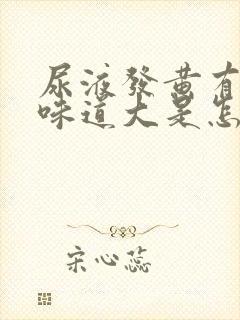 尿液發黄有
味道大是怎
宋心蕊